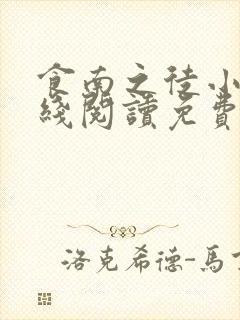 食南之徒小
綫閱讀免費
洛克希德-馬